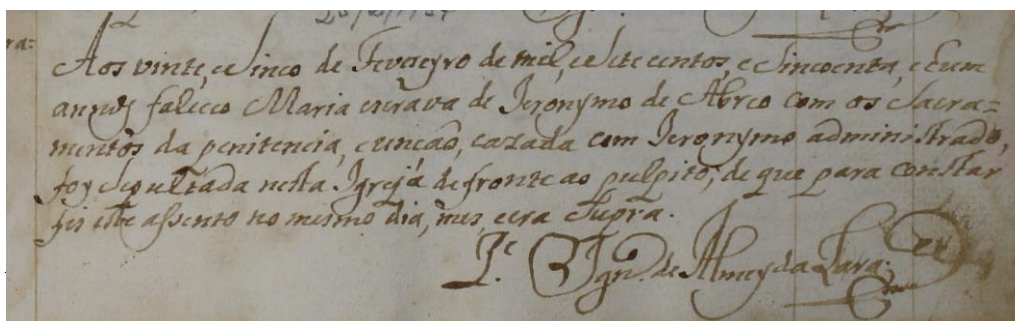 ra=
Aos vinte, e sinco de Fevereyro de mil, e sete centos, e sincoenta, e hum
annos faleceo Maria escrava de Jeronymo de Abreo com os Sacra=
mentos da penitencia, e unção, cazada com Jeronymo administrado,
foy sepultada nesta Igreja defronte ao pulpito; de que para constar
fis este assento no mesmo dia, mes, e era Supra.
Ign.º de Almeyda Lara